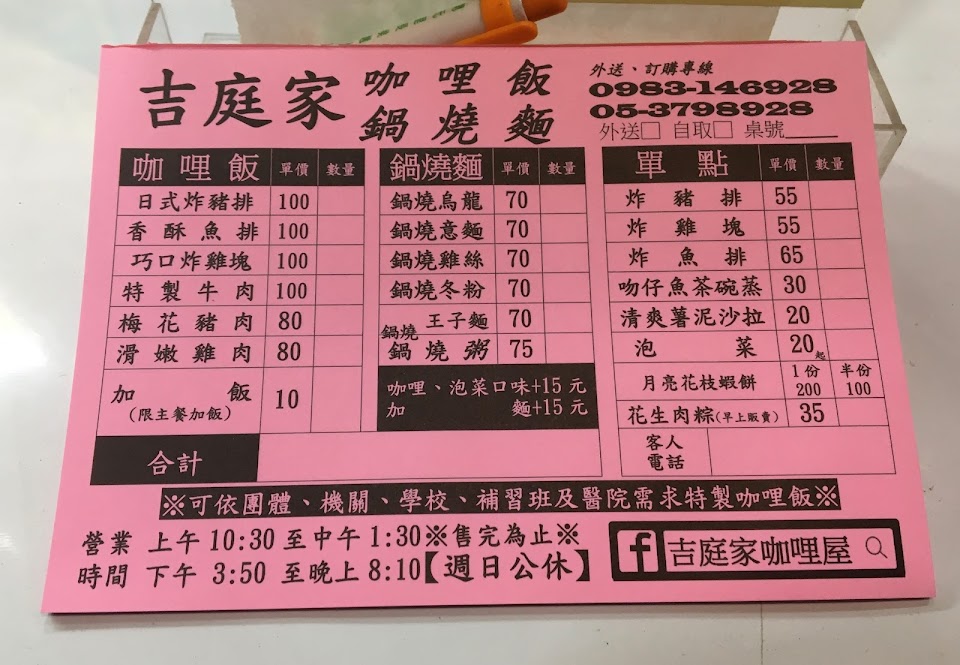 吉庭家 咖哩飯 鍋燒麵
外送、訂購專線
0983-146928
05-3798928
外送□ 自取□ 桌號
咖哩飯 單價 數量
日式炸豬排 100
香酥魚排 100
巧口炸雞塊 100
特製牛肉 100
梅花豬肉 80
滑嫩雞肉 80
加飯 (限主餐加飯) 10
合計
鍋燒麵 單價 數量
鍋燒烏龍 70
鍋燒意麵 70
鍋燒雞絲 70
鍋燒冬粉 70
鍋燒王子麵 70
鍋燒粥 75
咖哩、泡菜口味+15元
加麵+15元
單點 單價 數量
炸豬排 55
炸雞塊 55
炸魚排 65
吻仔魚茶碗蒸 30
清爽薯泥沙拉 20
泡菜 20起
月亮花枝蝦餅 1份 200 半份 100
花生肉粽(早上販賣) 35
客人電話
※可依團體、機關、學校、補習班及醫院需求特製咖哩飯※
營業時間 上午 10:30 至中午 1:30※售完為止※
下午 3:50 至晚上 8:10【週日公休】
f 吉庭家咖哩屋